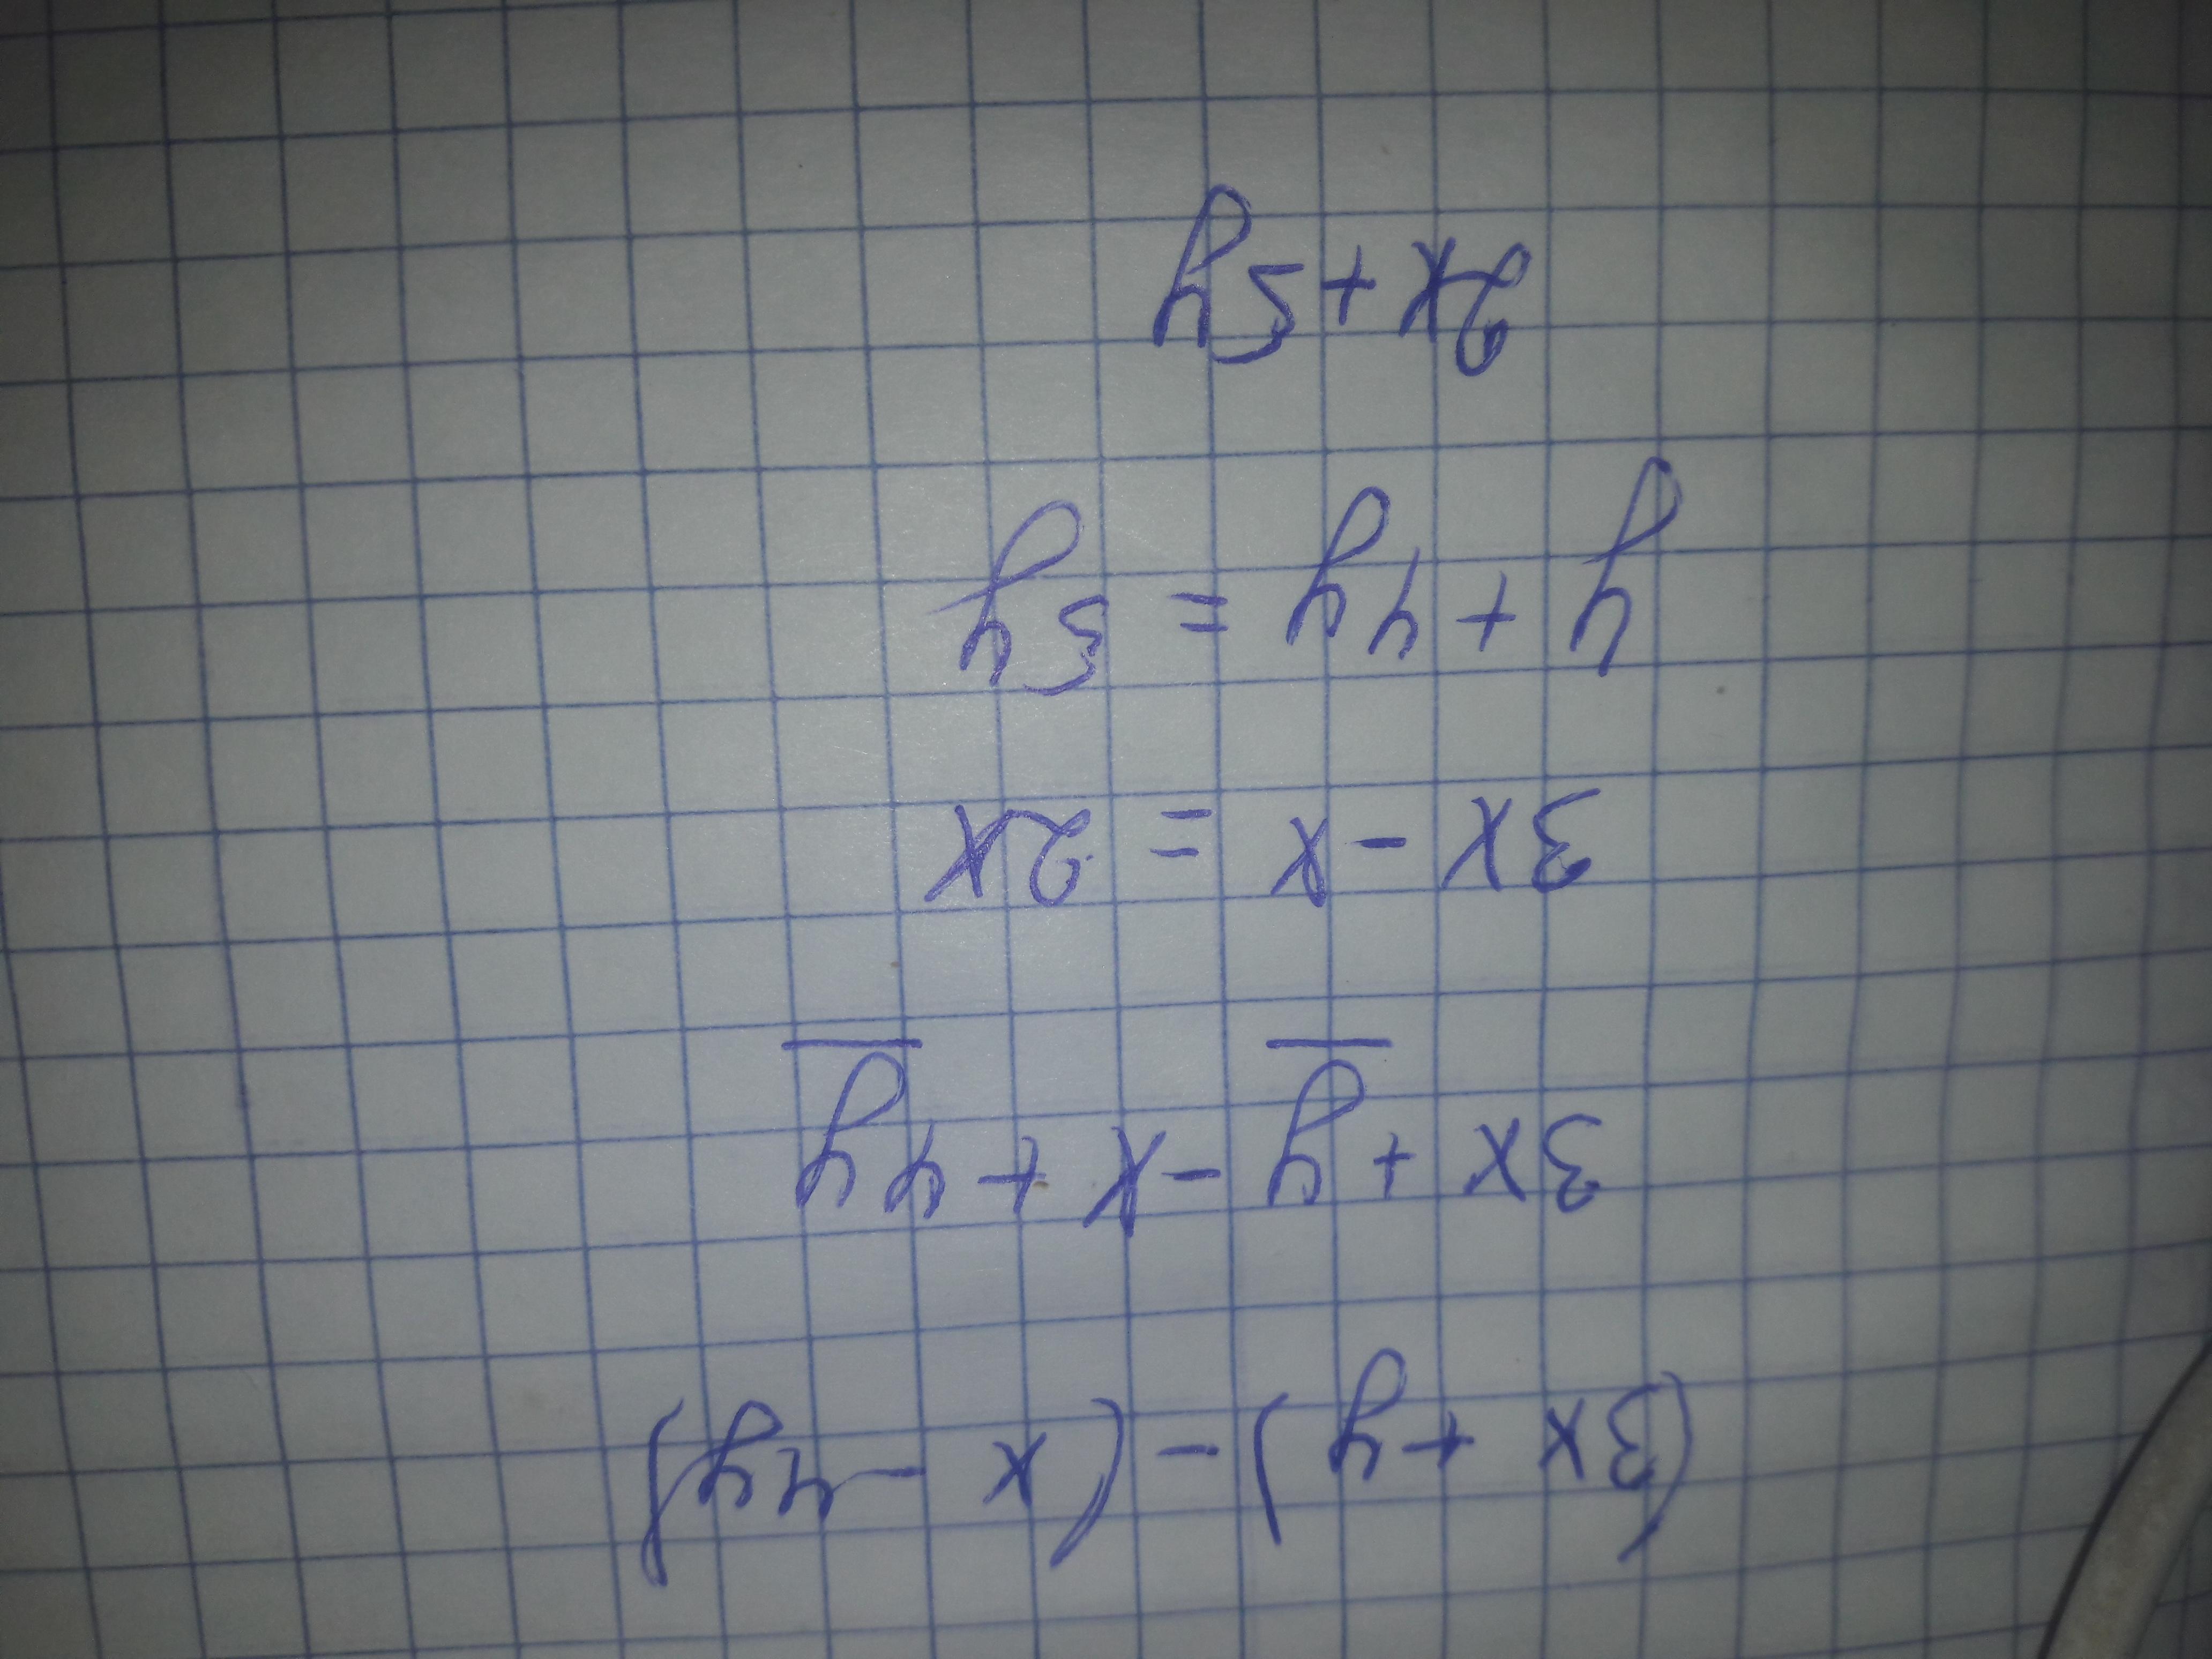 (3x + y) - (x - 4y)
3x + y - x + 4y
3x - x = 2x
y + 4y = 5y
2x + 5y